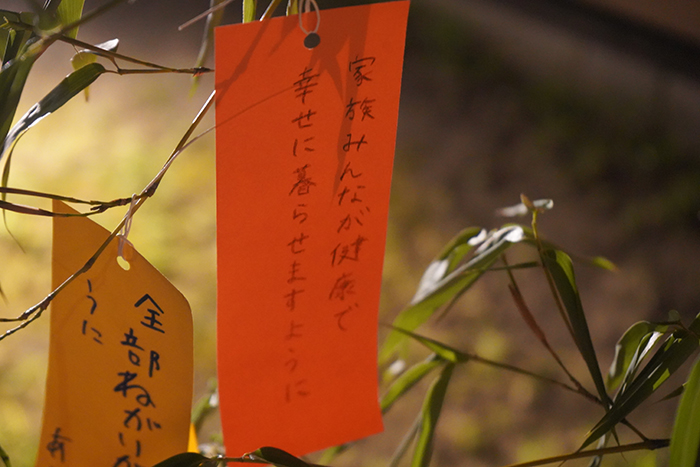 家族みんなが健康で
幸せに暮らせますように
全部ねがいが
うに